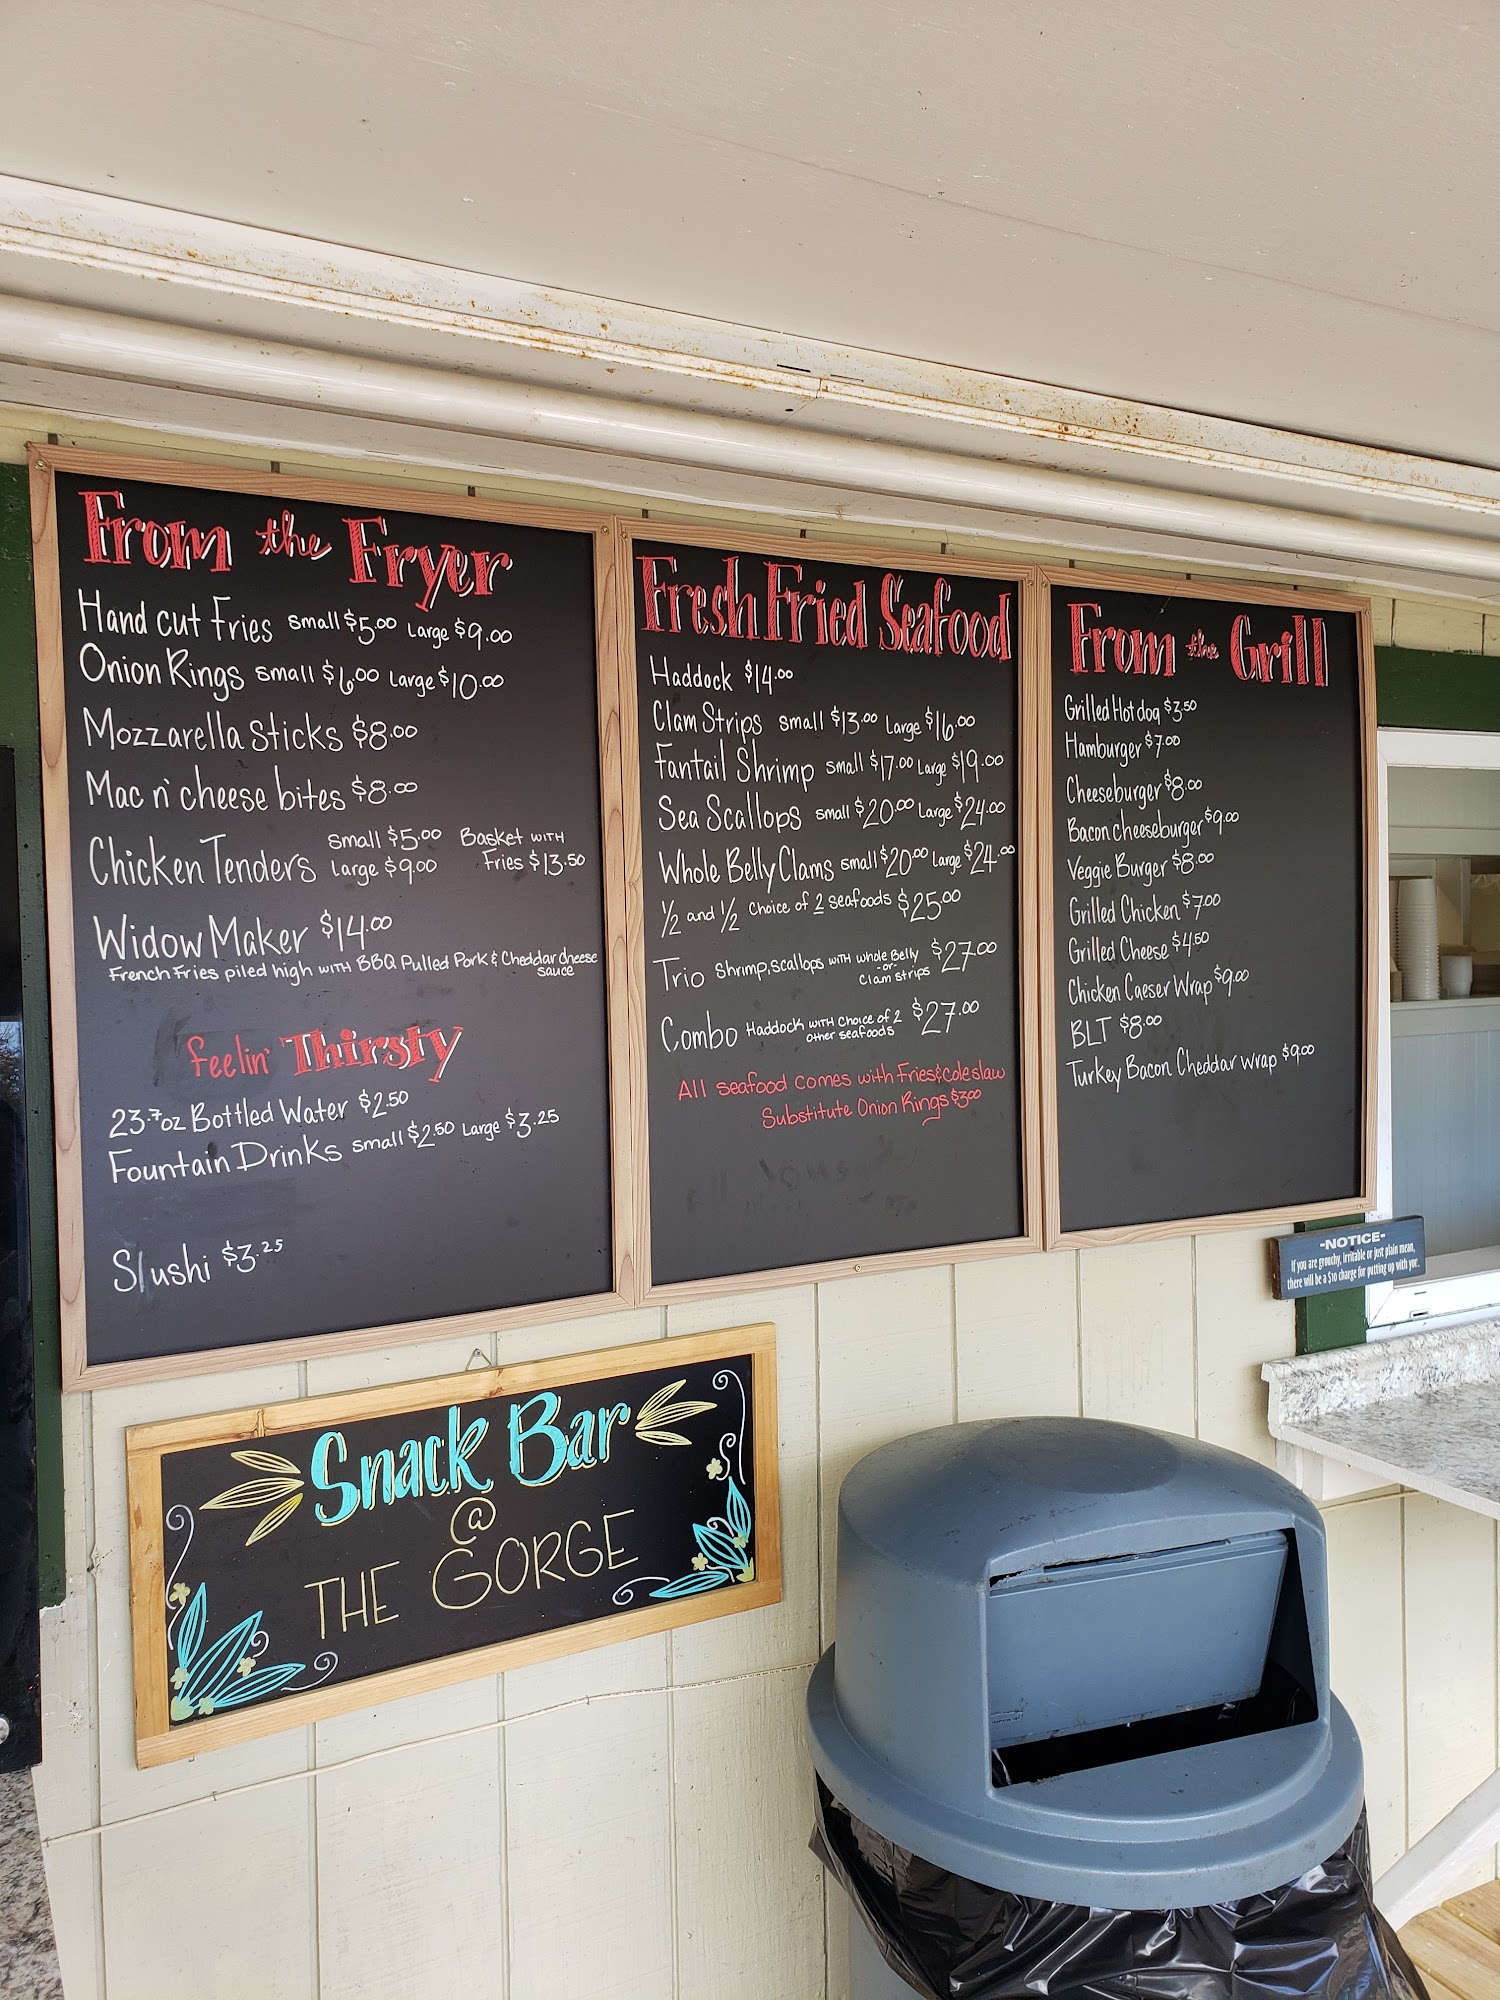 From the Fryer
Hand cut Fries small $5.00 Large $9.00
Onion Rings small $6.00 Large $10.00
Mozzarella Sticks $8.00
Mac n' cheese bites $8.00
Chicken Tenders small $5.00 Basket with
Large $9.00 Fries $13.50
Widow Maker $14.00
French Fries piled high with BBQ Pulled Pork & Cheddar cheese
sauce
feelin' Thirsty
23.7oz Bottled Water $2.50
Fountain Drinks small $2.50 Large $3.25
Slushi $3.25
Fresh Fried Seafood
Haddock $14.00
Clam Strips small $13.00 Large $16.00
Fantail Shrimp small $17.00 Large $19.00
Sea Scallops small $20.00 Large $24.00
Whole Belly Clams small $20.00 Large $24.00
1/2 and 1/2 Choice of 2 seafoods $25.00
Trio Shrimp, scallops with whole Belly $27.00
-or-
Clam strips
Combo Haddock with choice of 2 $27.00
other seafoods
All seafood comes with Fries & coleslaw
Substitute Onion Rings $3.00
From the Grill
Grilled Hot dog $3.50
Hamburger $7.00
Cheeseburger $8.00
Bacon cheeseburger $9.00
Veggie Burger $8.00
Grilled Chicken $7.00
Grilled Cheese $4.50
Chicken Caeser Wrap $9.00
BLT $8.00
Turkey Bacon Cheddar wrap $9.00
-NOTICE-
If you are grouchy, irritable or just plain mean,
there will be a $10 charge for putting up with you.
Snack Bar
@
THE GORGE